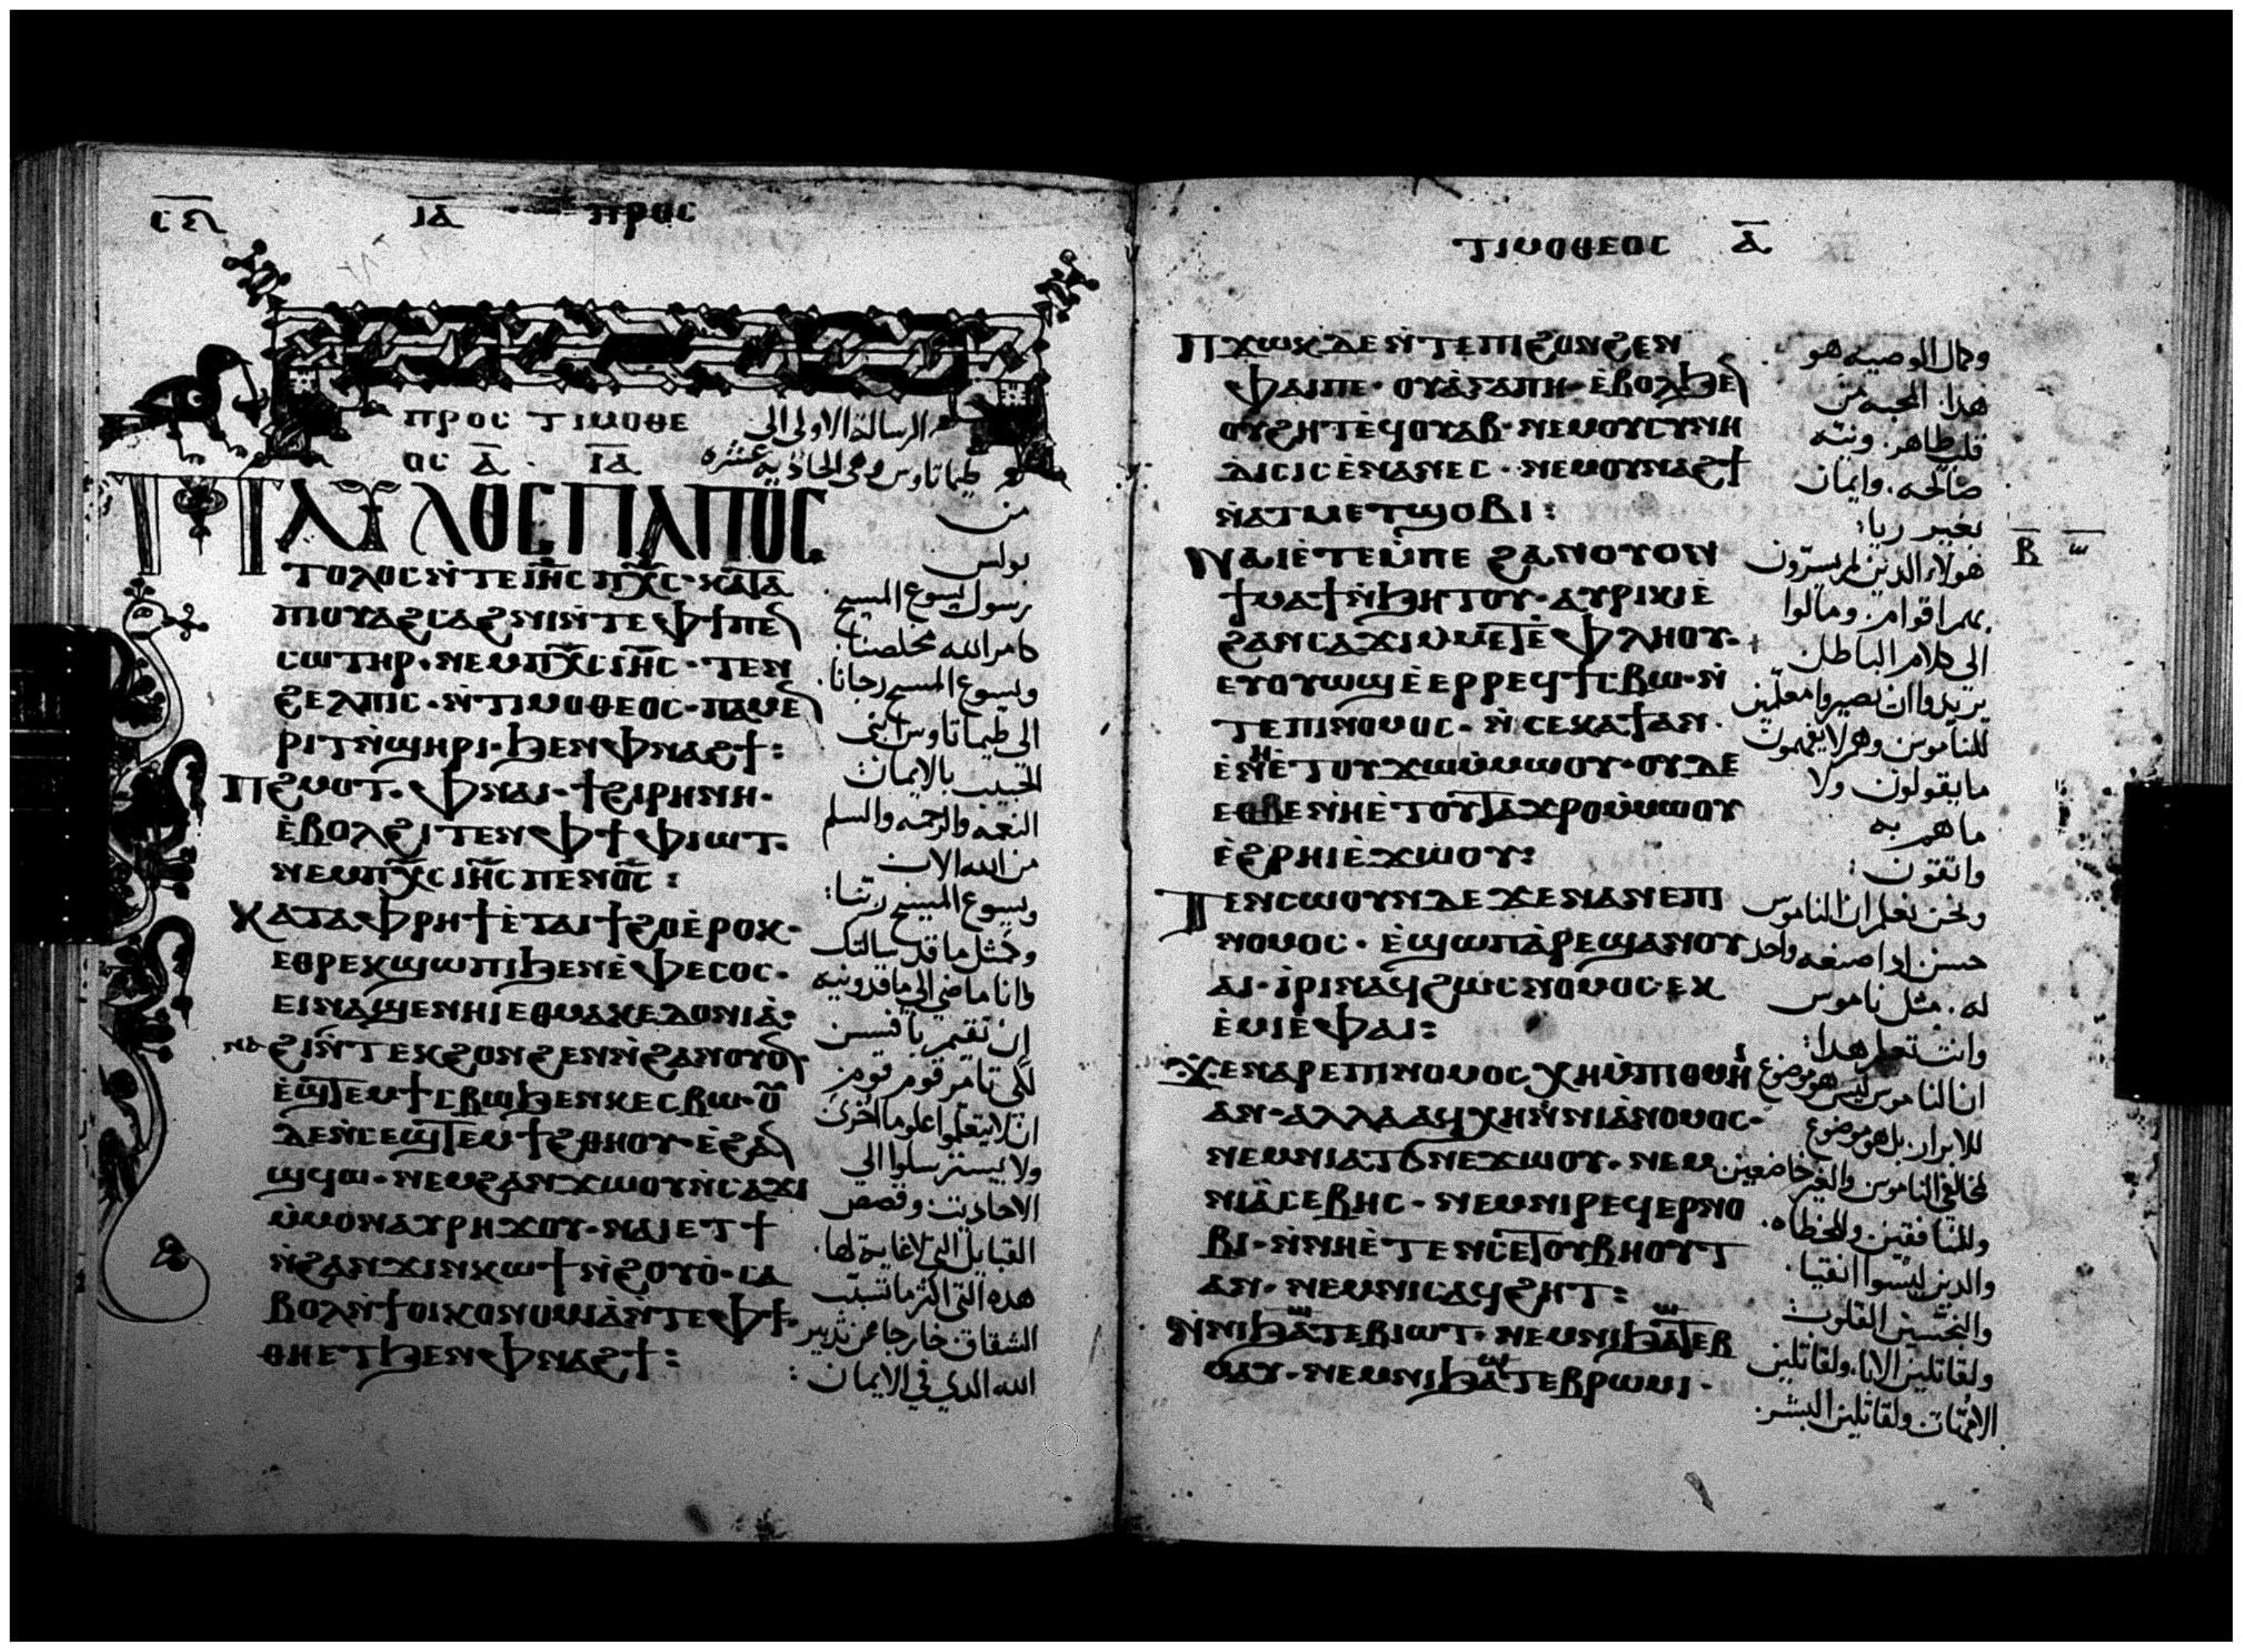 ⲓ̅ⲁ̅ ⲡⲣⲟⲥ
ⲡⲣⲟⲥ ⲧⲓⲙⲟⲑⲉ
ⲟⲥ ⲁ̅ · ⲓ̅ⲁ̅
الرسالة الاولى الى
طيماتاوس وهى الحاديه عشره
ⲡⲁⲩⲗⲟⲥ ⲡⲁⲡⲟⲥ
ⲧⲟⲗⲟⲥ ⲛ̀ⲧⲉ ⲓⲏ̅ⲥ ⲡⲭ̅ⲥ · ⲕⲁⲧⲁ
ⲡⲓⲟⲩⲁϩⲥⲁϩⲛⲓ ⲛ̀ⲧⲉ ⲫϯ ⲡⲉⲛ
ⲥⲱⲧⲏⲣ · ⲛⲉⲙ ⲡⲭ̅ⲥ ⲓⲏ̅ⲥ · ⲧⲉⲛ
ϩⲉⲗⲡⲓⲥ · ⲛ̀ⲧⲓⲙⲟⲑⲉⲟⲥ · ⲡⲁⲙⲉⲛ
ⲣⲓⲧ ⲛ̀ϣⲏⲣⲓ · ϧⲉⲛ ⲫⲛⲁϩϯ :
ⲡϩⲙⲟⲧ · ⲫⲛⲁⲓ · ϯϩⲓⲣⲏⲛⲏ ·
ⲉ̀ⲃⲟⲗ ϩⲓⲧⲉⲛ ⲫϯ ⲫⲓⲱⲧ ·
ⲛⲉⲙ ⲡⲭ̅ⲥ ⲓⲏ̅ⲥ ⲡⲉⲛⲟ̅ⲥ̅ :
ⲕⲁⲧⲁ ⲫⲣⲏϯ ⲉ̀ⲧⲁⲓϯϩⲟ ⲉ̀ⲣⲟⲕ ·
ⲉⲑⲣⲉⲕϣⲱⲡⲓ ϧⲉⲛ ⲉ̀ⲫⲉⲥⲟⲥ ·
ⲉⲓⲛⲁϣⲉⲛⲏⲓ ⲉⲑⲙⲁⲕⲉⲇⲟⲛⲓⲁ̀ :
ϩⲓⲛⲁ ⲛ̀ⲧⲉⲕϩⲟⲛϩⲉⲛ ⲛ̀ϩⲁⲛⲟⲩⲟⲛ
ⲉ̀ϣⲧⲉⲙϯⲥⲃⲱ ϧⲉⲛ ⲕⲉⲥⲃⲱ · ⲟⲩ
ⲇⲉ ⲛ̀ⲥⲉϣⲧⲉⲙϯϩⲑⲏⲟⲩ · ⲉ̀ϩⲁⲛ
ϣϥⲱ · ⲛⲉⲙ ϩⲁⲛϫⲱⲟⲩ ⲛ̀ⲥⲁϫⲓ
ⲙ̀ⲙⲟⲛ ⲁⲩⲣⲏϫⲟⲩ · ⲛⲁⲓ ⲉⲧϯ
ⲛ̀ϩⲁⲛϫⲓⲛⲕⲱϯ ⲛ̀ϩⲟⲩⲟ̀ · ⲥⲁ
ⲃⲟⲗ ⲛ̀ϯⲟⲓⲕⲟⲛⲟⲙⲓⲁ̀ ⲛ̀ⲧⲉ ⲫϯ ·
ⲑⲏ ⲉⲧϧⲉⲛ ⲫⲛⲁϩϯ :
من
بولس
رسول يسوع المسيح
كامر الله مخلصنا
ويسوع المسيح رجانا
الى طيماتاوس ابني
الحبيب بالايمان
النعمه والرحمه والسلم
من الله الاب
ويسوع المسيح ربنا :
وكمثل ما قد سالتك
وانا ماضي الى ماقدونيه
ان تقيم بافسس
لكى تامر قوم قوم
ان لا يتعلموا علوما اخرى
ولا يسترسلوا الى
الاحاديث وقصص
القبايل التى لا غاية لها
هذه التى اكثر ما تسبب
الشقاق خارجا عن تدبير
الله الذي في الايمان :
ⲧⲓⲙⲟⲑⲉⲟⲥ ⲁ̅
ⲡϫⲱⲕ ⲇⲉ ⲛ̀ⲧⲉ ⲡⲓϩⲟⲛϩⲉⲛ
ⲫⲁⲓ ⲡⲉ · ⲟⲩⲁ̀ⲅⲁⲡⲏ · ⲉ̀ⲃⲟⲗ ϧⲉⲛ
ⲟⲩϩⲏⲧ ⲉϥⲟⲩⲁⲃ · ⲛⲉⲙ ⲟⲩⲥⲩⲛⲏ
ⲇⲓⲥⲓⲥ ⲉ̀ⲛⲁⲛⲉⲥ · ⲛⲉⲙ ⲟⲩⲛⲁϩϯ
ⲛ̀ⲁⲧⲙⲉⲧϣⲟⲃⲓ :
ⲛⲁⲓ ⲉ̀ⲧⲉⲙ̀ⲡⲉ ϩⲁⲛⲟⲩⲟⲛ
ϯⲙⲁϯ ⲛ̀ϧⲏⲧⲟⲩ · ⲁⲩⲣⲓⲕⲓ ⲉ̀
ϩⲁⲛⲥⲁϫⲓ ⲙ̀ⲙⲉⲧⲉ̀ⲫⲗⲏⲟⲩ ·
ⲉⲩⲟⲩⲱϣ ⲉ̀ⲉⲣⲣⲉϥϯⲥⲃⲱ · ⲛ̀
ⲧⲉ ⲡⲓⲛⲟⲙⲟⲥ · ⲛ̀ⲥⲉⲕⲁϯ ⲁⲛ ·
ⲉ̀ⲛⲏ ⲉ̀ⲧⲟⲩϫⲱ ⲙ̀ⲙⲱⲟⲩ · ⲟⲩⲇⲉ
ⲉⲑⲃⲉ ⲛⲏ ⲉ̀ⲧⲟⲩⲧⲁϫⲣⲟ ⲙ̀ⲙⲱⲟⲩ
ⲉ̀ϩⲣⲏⲓ ⲉ̀ϫⲱⲟⲩ :
ⲧⲉⲛⲥⲱⲟⲩⲛ ⲇⲉ ϫⲉ ⲛⲁⲛⲉ ⲡⲓ
ⲛⲟⲙⲟⲥ · ⲉ̀ϣⲱⲡ ⲁ̀ⲣⲉϣⲁⲛ ⲟⲩ
ⲁⲓ · ⲓ̀ⲣⲓ ⲛⲁϥ ϩⲱⲥ ⲛⲟⲙⲟⲥ · ⲉⲕ
ⲉ̀ⲙⲓ ⲉ̀ⲫⲁⲓ :
ϫⲉ ⲛⲁⲣⲉ ⲡⲓⲛⲟⲙⲟⲥ ⲭⲏ ⲙ̀ⲡⲓⲑⲙⲏⲓ
ⲁⲛ · ⲁⲗⲗⲁ ⲁϥⲭⲏ ⲛ̀ⲛⲓⲁ̀ⲛⲟⲙⲟⲥ ·
ⲛⲉⲙ ⲛⲓⲁⲧϭⲛⲉϫⲱⲟⲩ · ⲛⲉⲙ
ⲛⲓⲁ̀ⲥⲉⲃⲏⲥ · ⲛⲉⲙ ⲛⲓⲣⲉϥⲉⲣⲛⲟ
ⲃⲓ · ⲛ̀ⲛⲏ ⲉ̀ⲧⲉ ⲛⲥⲉⲧⲟⲩⲃⲏⲟⲩⲧ
ⲁⲛ · ⲛⲉⲙ ⲛⲓⲥⲁϥϩⲏⲧ :
ⲛ̀ⲛⲓϧⲁⲧⲉⲃⲓⲱⲧ · ⲛⲉⲙ ⲛⲓϧⲁⲧⲉⲃ
ⲙⲁⲩ · ⲛⲉⲙ ⲛⲓϧⲁⲧⲉⲃⲣⲱⲙⲓ ·
وكمال الوصيه هو
هذا. المحبه من
قلب طاهر. ونيته
صالحه. وايمان
بغير ريا :
هولاء الذين لم يسترون
بهم اقوام. ومالوا
الى كلام الباطل
يريدوا ان يصيروا معلمين
للناموس وهم لا يفهمون
ما يقولون ولا
ما هم به
واثقون :
ونحن نعلم ان الناموس
حسن اذا صنعه واحد
له. مثل ناموس
وانت تعلم هذا :
ان الناموس ليس هو موضوع
للابرار. بل هو موضوع
لمخالفى الناموس والغير خاضعين
وللمنافقين وللخطاه.
والذين ليسوا انقيا.
والنجسين القلوب
ولقاتلين الابا. ولقاتلين
الامهات ولقاتلين البشر.
ⲃ̅